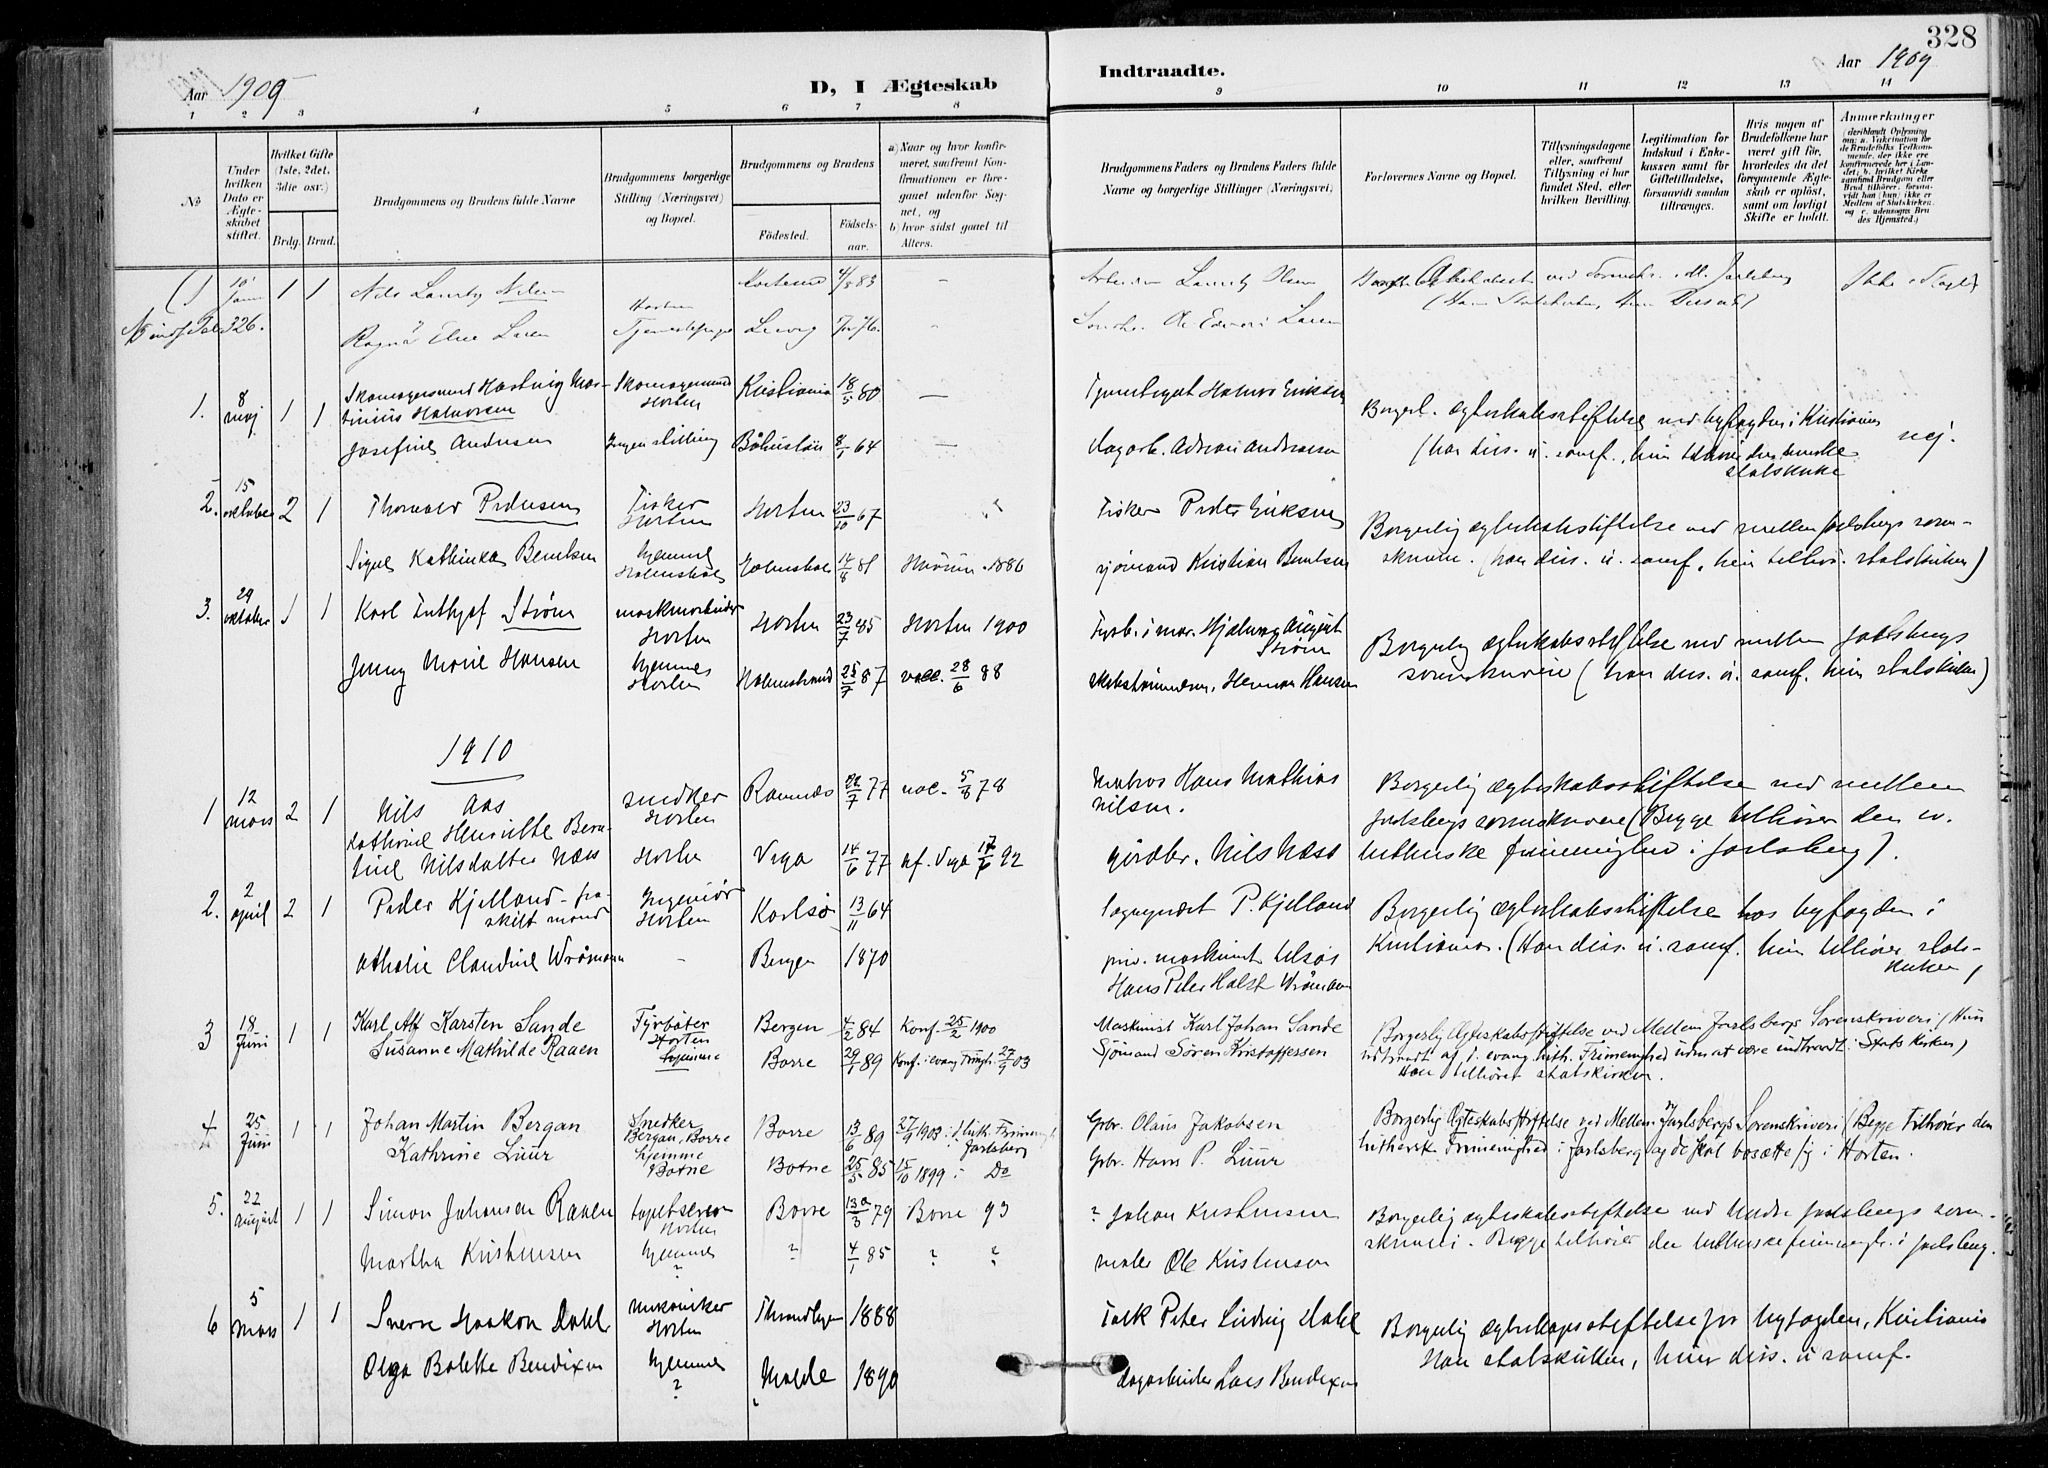 328
Aar 1909
D, I Ægteskab
Indtraadte.
Aar 1909
1 2 3 4 5 6 7 8 9 10 11 12 13 14
No
Under hvilken Dato er Ægteskabet stiftet.
Hvilket Gifte (1ste, 2det, 3die osv.)
Brdg. Brud.
Brudgommens og Brudens fulde Navne
Brudgommens borgerlige Stilling (Næringsvei) og Bopæl.
Brudgommens og Brudens
Fødested. Fødselsaar.
a) Naar og hvor konfirmeret, saafremt Konfirmationen er foregaaet udenfor Sognet, og
b) hvor sidst gaaet til Alters.
Brudgommens Faders og Brudens Faders fulde Navne og borgerlige Stillinger (Næringsvei)
Forlovernes Navne og Bopæl.
Tillysningsdagene eller, saafremt Tillysning ei har fundet Sted, efter hvilken Bevilling.
Legitimation for Indskud i Enkekassen samt for Giftetilladelse, forsaavidt saadan tiltrænges.
Hvis nogen af Brudefolkene har været gift før, hvorledes da det foregaaende Ægteskab er opløst, samt om lovligt Skifte er holdt.
Anmærkninger
(deriblandt Oplysning om: a. Vakcination for de Brudefolks Vedkommende, der ikke ere konfirmerede her i Landet; b. hvilket Kirkesamfund Brudgom eller Brud tilhører, forsaavidt han (hun) ikke er Medlem af Statskirken, og c. udensogns Brudes Hjemsted.)
10 Jan 1 1 Nils Nilsen 4/8 83 —
326. Ragna Larsen Horten Larvig 76 —
1. 8 maj 1 1 Hartvig Marinius Halvorsen Horten Kristiania 18/5 80 — Halvor Eriksen Borgerl. ægteskabsstiftelse ved byfogden i Kristiania
Josefine Andersen Ingen stilling Båhuslän 8/1 64 — dagarb. Adrian Andersen (han diss. u. samf., hun den svenske statskirke nej.
2. 15 oktober 2 1 Thorvald Pedersen Fisker Horten Horten 23/10 67 Fisker Peder Eriksen Borgerlig ægteskabsstiftelse ved mellem Jarlsbergs soren-
Signe Kathinka Berntsen hjemme Holmsbo 14/8 81 Hurum 1886 sjømand Kristian Berntsen skriveri. (han diss. u. samf. hun tilhør. statskirken)
3. 29 oktober 1 1 Karl Frithjof Strøm maskinarbeider Horten Horten 23/7 85 Horten 1900 Hjalmar August Strøm Borgerlig ægteskabsstiftelse ved mellem Jarlsbergs
Jenny Marie Hansen hjemme Horten Holmestrand 25/7 87 vacc. 28/6 88 skibstømmerm. Herman Hansen sorenskriveri (han diss. u. samf. hun statskirken)
1910
1 12 mars 2 1 Nils Aas snedker Horten Ramnes 22/7 77 vac. 5/8 78 Matros Hans Mathias Nilsen. Borgerlig ægteskabsstiftelse ved mellem
Kathrine Henriette Berntine Nilsdatter Næss Horten Vega 14/6 77 af. Vega 17/6 92 gårdbr. Nils Næss Jarlsbergs sorenskriveri (Begge tilhører den ev. lutherske frimenighed i Jarlsberg).
2. 2 april 2 1 Peder Kjelland - fraskilt mand Ingeniør Horten Karlsø 13/11 64 P. Kjelland Borgerlig ægteskabsstiftelse hos byfogden i
Athalie Claudine Wrømann - Bergen 1870 Hans Peter Holst Wrømann Kristiania. (Han diss. u. samf. hun tilhører statskirken)
3 18 Juni 1 1 Karl Alf Karsten Sande Fyrbøter Horten Bergen 4/2 84 Konf. 25/2 1900 Maskinist Karl Johan Sande Borgerlig Ægteskabsstiftelse ved Mellem Jarlsbergs Sorenskriveri (Hun
Susanne Mathilde Raaen hjemme Borre 29/1 89 Konf. i evang. Frimgh. 27/9 03 Sjømand Søren Kristoffersen udtraadt af d. evang. luth. Frimenighed uden at være indtraadt i Statskirken)
Han tilhører statskirken.
4 25 Juni 1 1 Johan Martin Bergan Snedker Bergan, Borre Borre 13/6 89 27/9 1903 i d. luth. Frimenigh. Jarlsberg Gbr. Olaus Jakobsen Borgerlig Ægteskabsstiftelse ved Mellem Jarlsbergs Sorenskriveri (Begge tilhører den
Kathrine Liuur hjemme Botne Botne 25/5 85 15/10 1899 i Do Gbr. Hans P. Liuur lutherske Frimenighed i Jarlsberg og de skal bosætte sig i Horten.
5. 22 august 1 1 Simon Johansen Raaen tapetserer Horten Borre 13/3 79 Borre 93 ? Johan Kristensen Borgerlig ægteskabsstiftelse ved Nordre Jarlsbergs soren-
Martha Kristensen hjemme ? ? 4/1 85 ? ? maler Ole Kristensen skriveri. Begge tilhører den lutherske frimenigh. i Jarlsberg.
6 5 Mars 1 1 Sverre Haakon Dahl mekaniker Horten Throndhjem 1888 Tolk Peter Ludvig Dahl Borgerlig ægteskapsstiftelse for byfogden, Kristiania
Olga Bolette Bendixen hjemme ? Molde 1890 dagarbeider Lars Bendixen Han statskirken, hun diss. u samf.